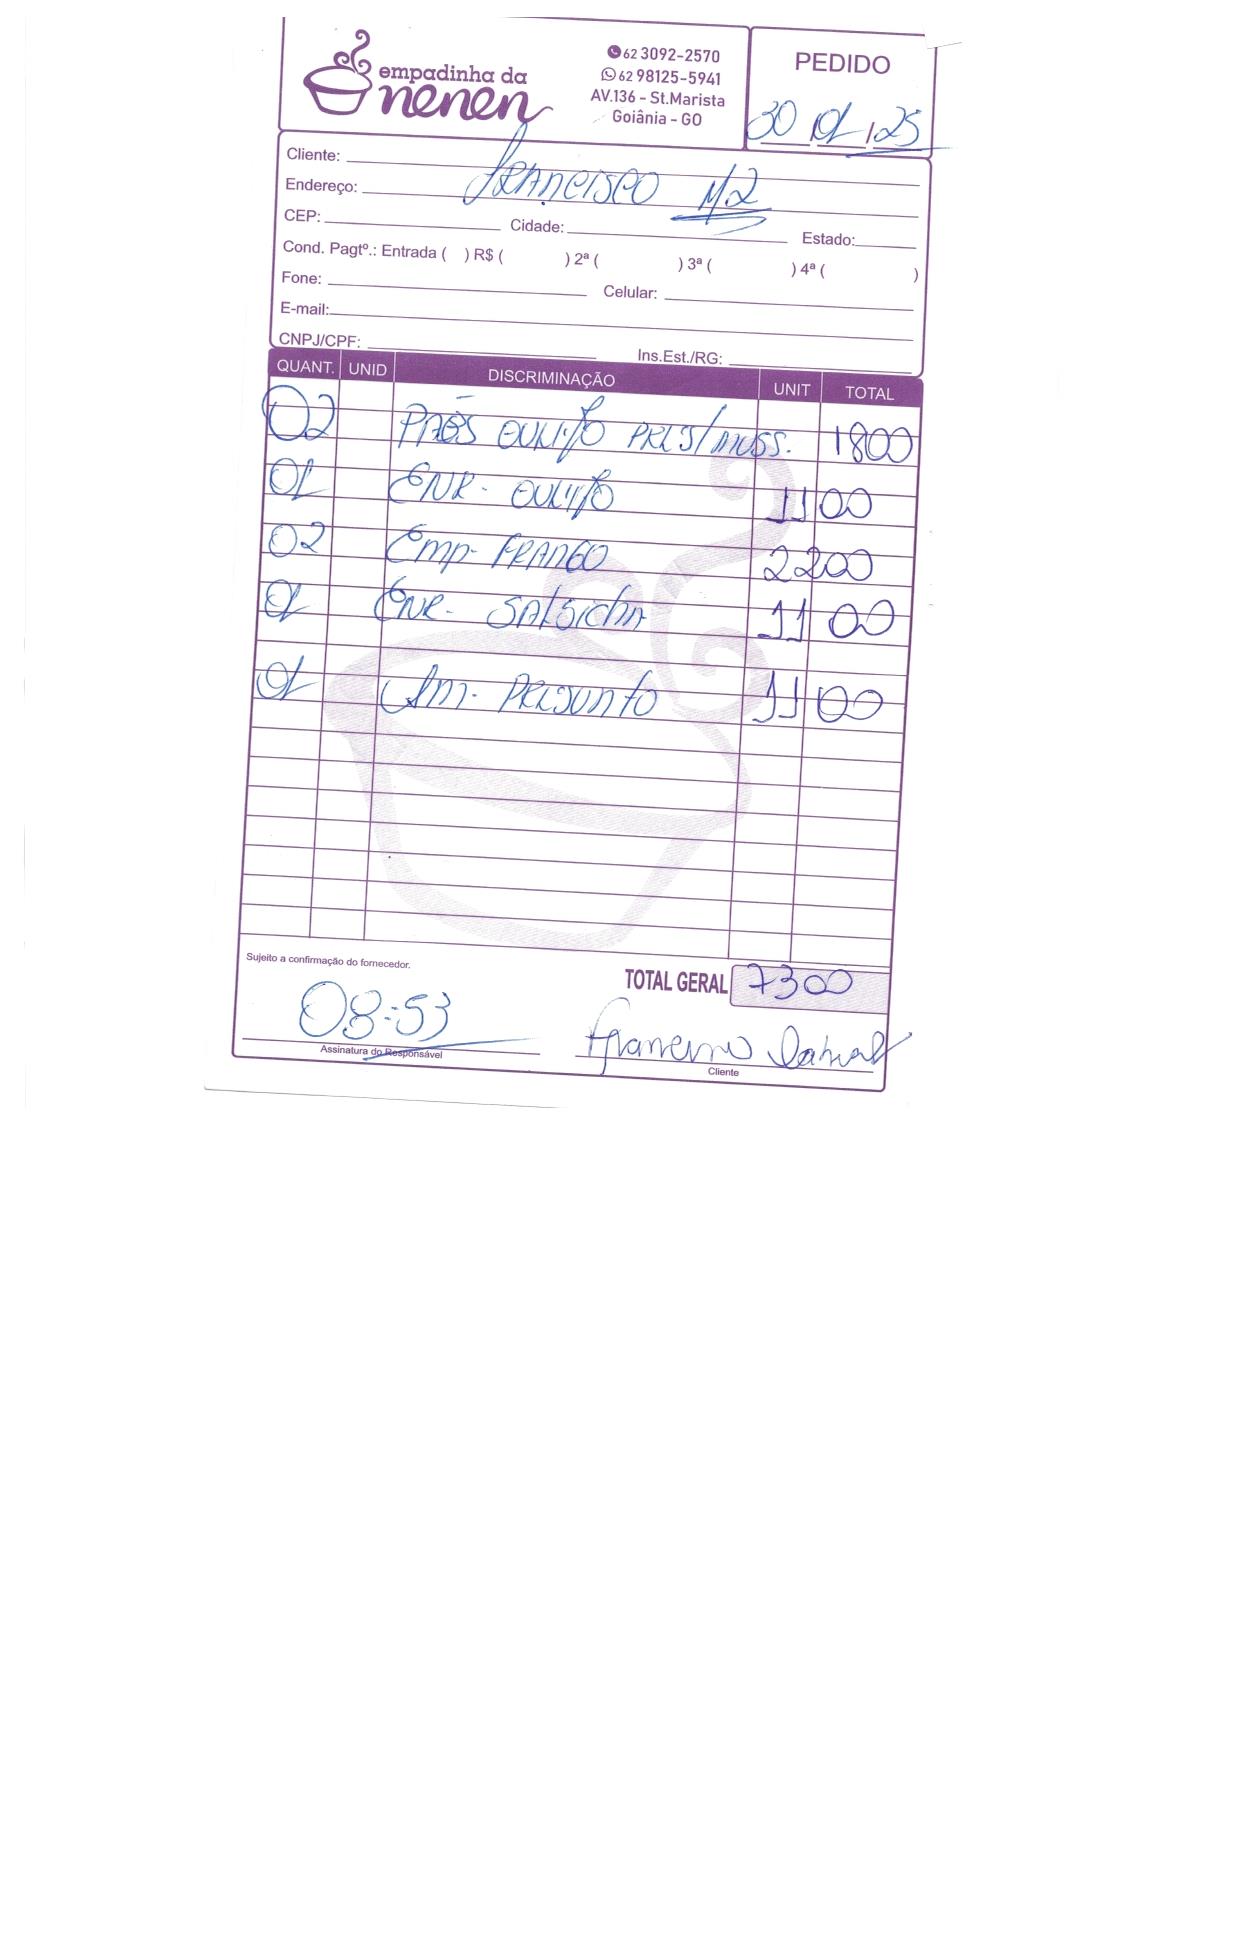 empadinha da
nenen
62 3092-2570
62 98125-5941
AV.136 - St.Marista
Goiânia - GO
PEDIDO
30/01/25
Cliente:
Francisco M2
Endereço:
CEP: Cidade: Estado:
Cond. Pagtº.: Entrada ( ) R$ ( ) 2ª ( ) 3ª ( ) 4ª ( )
Fone: Celular:
E-mail:
CNPJ/CPF: Ins.Est./RG:
QUANT. UNID DISCRIMINAÇÃO UNIT TOTAL
02 Pães PRES/MUSS. 1800
01 ENR- 1100
02 Emp- FRANGO 2200
01 ENR- SALSICHA 1100
01 PRESUNTO 1100
Sujeito a confirmação do fornecedor.
TOTAL GERAL 7300
08:53
Assinatura do Responsável
Cliente